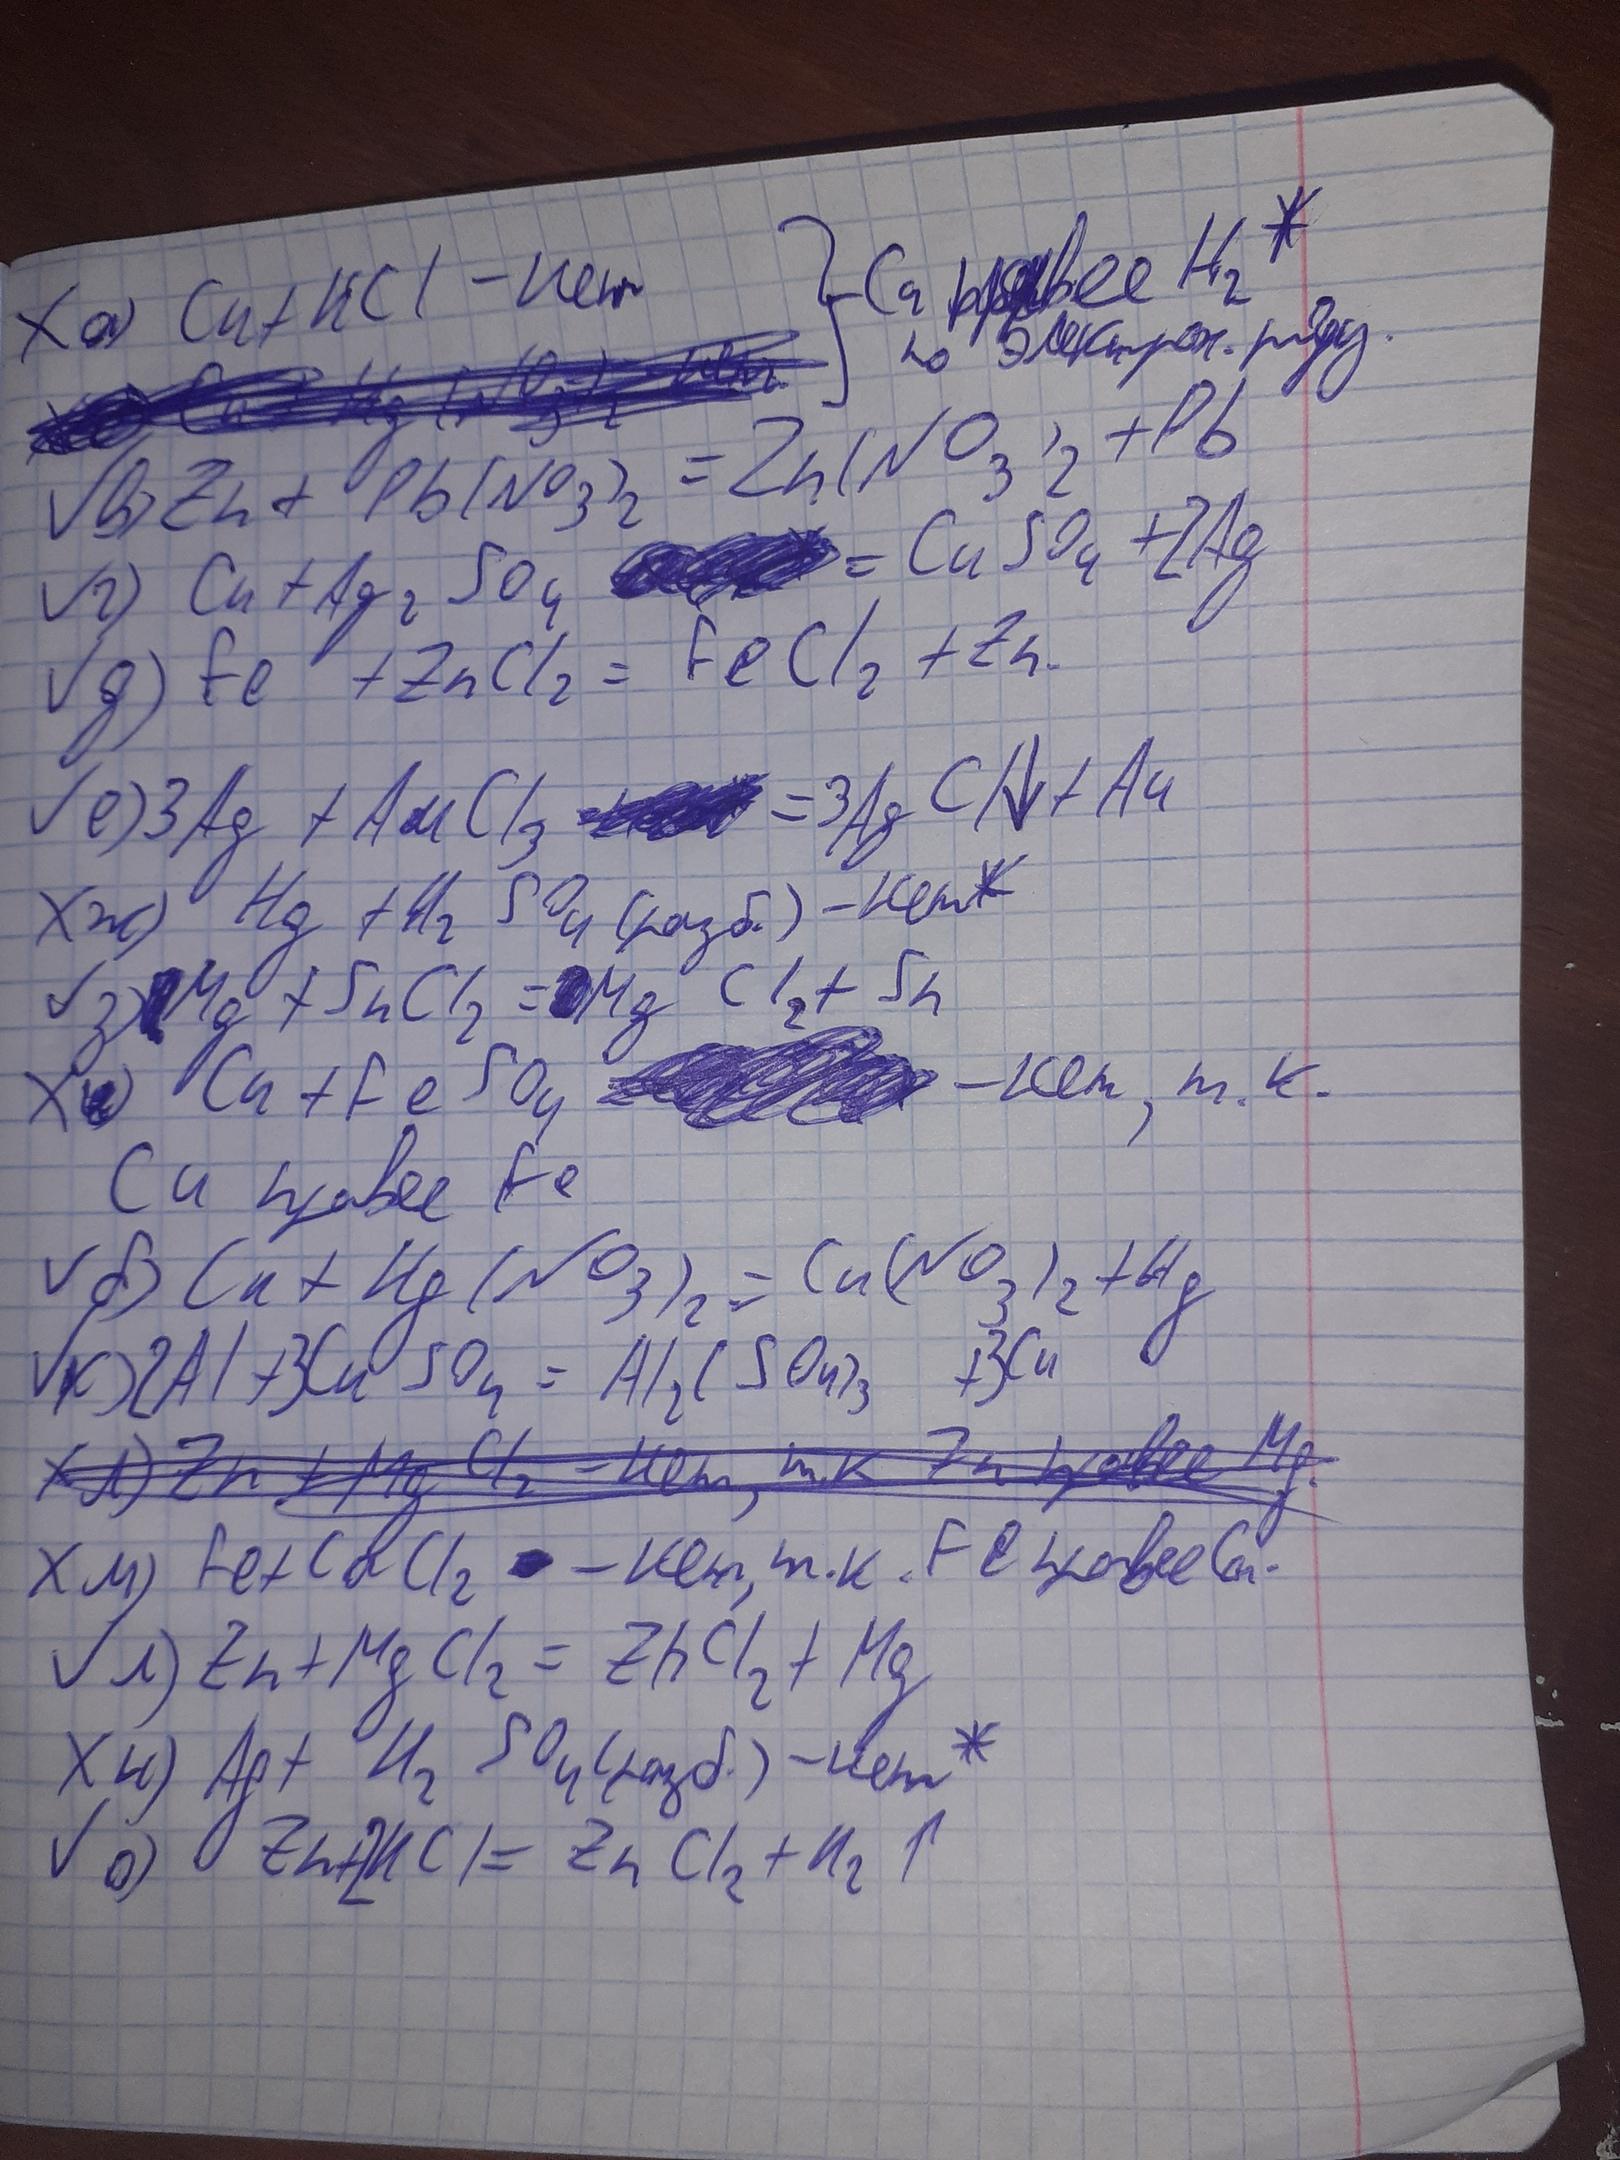 Xа) Cu+HCl – нет } Cu правее H₂*
по электрох. ряду.
Vв) Zn + Pb(NO₃)₂ = Zn(NO₃)₂ + Pb
Vг) Cu + Ag₂SO₄ = CuSO₄ + 2Ag
Vд) Fe + ZnCl₂ = FeCl₂ + Zn.
Vе) 3Ag + AuCl₃ = 3AgCl↓ + Au
Xж) Hg + H₂SO₄(разб.) – нет*
Vз) Mg + SnCl₂ = MgCl₂ + Sn
Xи) Cu + FeSO₄ – нет, т.к.
Cu правее Fe
Vб) Cu + Hg(NO₃)₂ = Cu(NO₃)₂ + Hg
Vк) 2Al + 3CuSO₄ = Al₂(SO₄)₃ + 3Cu
Xл) Zn + MgCl₂ – нет, т.к Zn правее Mg.
Xм) Fe + CaCl₂ – нет, т.к. Fe правее Ca.
Vл) Zn + MgCl₂ = ZnCl₂ + Mg
Xн) Ag + H₂SO₄(разб.) – нет*
Vо) Zn + 2HCl = ZnCl₂ + H₂↑